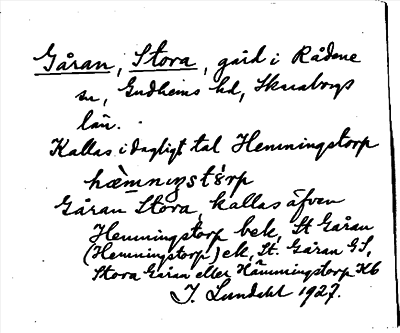 Gåran, Stora, gård i Rådene
sn, Gudhems hd, Skaraborgs
län.
Kallas i dagligt tal Hemmingstorp
hæmnıŋstɷrp
Gåran Stora, kallas äfven
Hemmingstorp bek, St Gåran
(Hemmingstorp) ek, St. Gåran GS,
Stora Gåran eller Hämmingstorp Hb
J. Lundahl 1927.